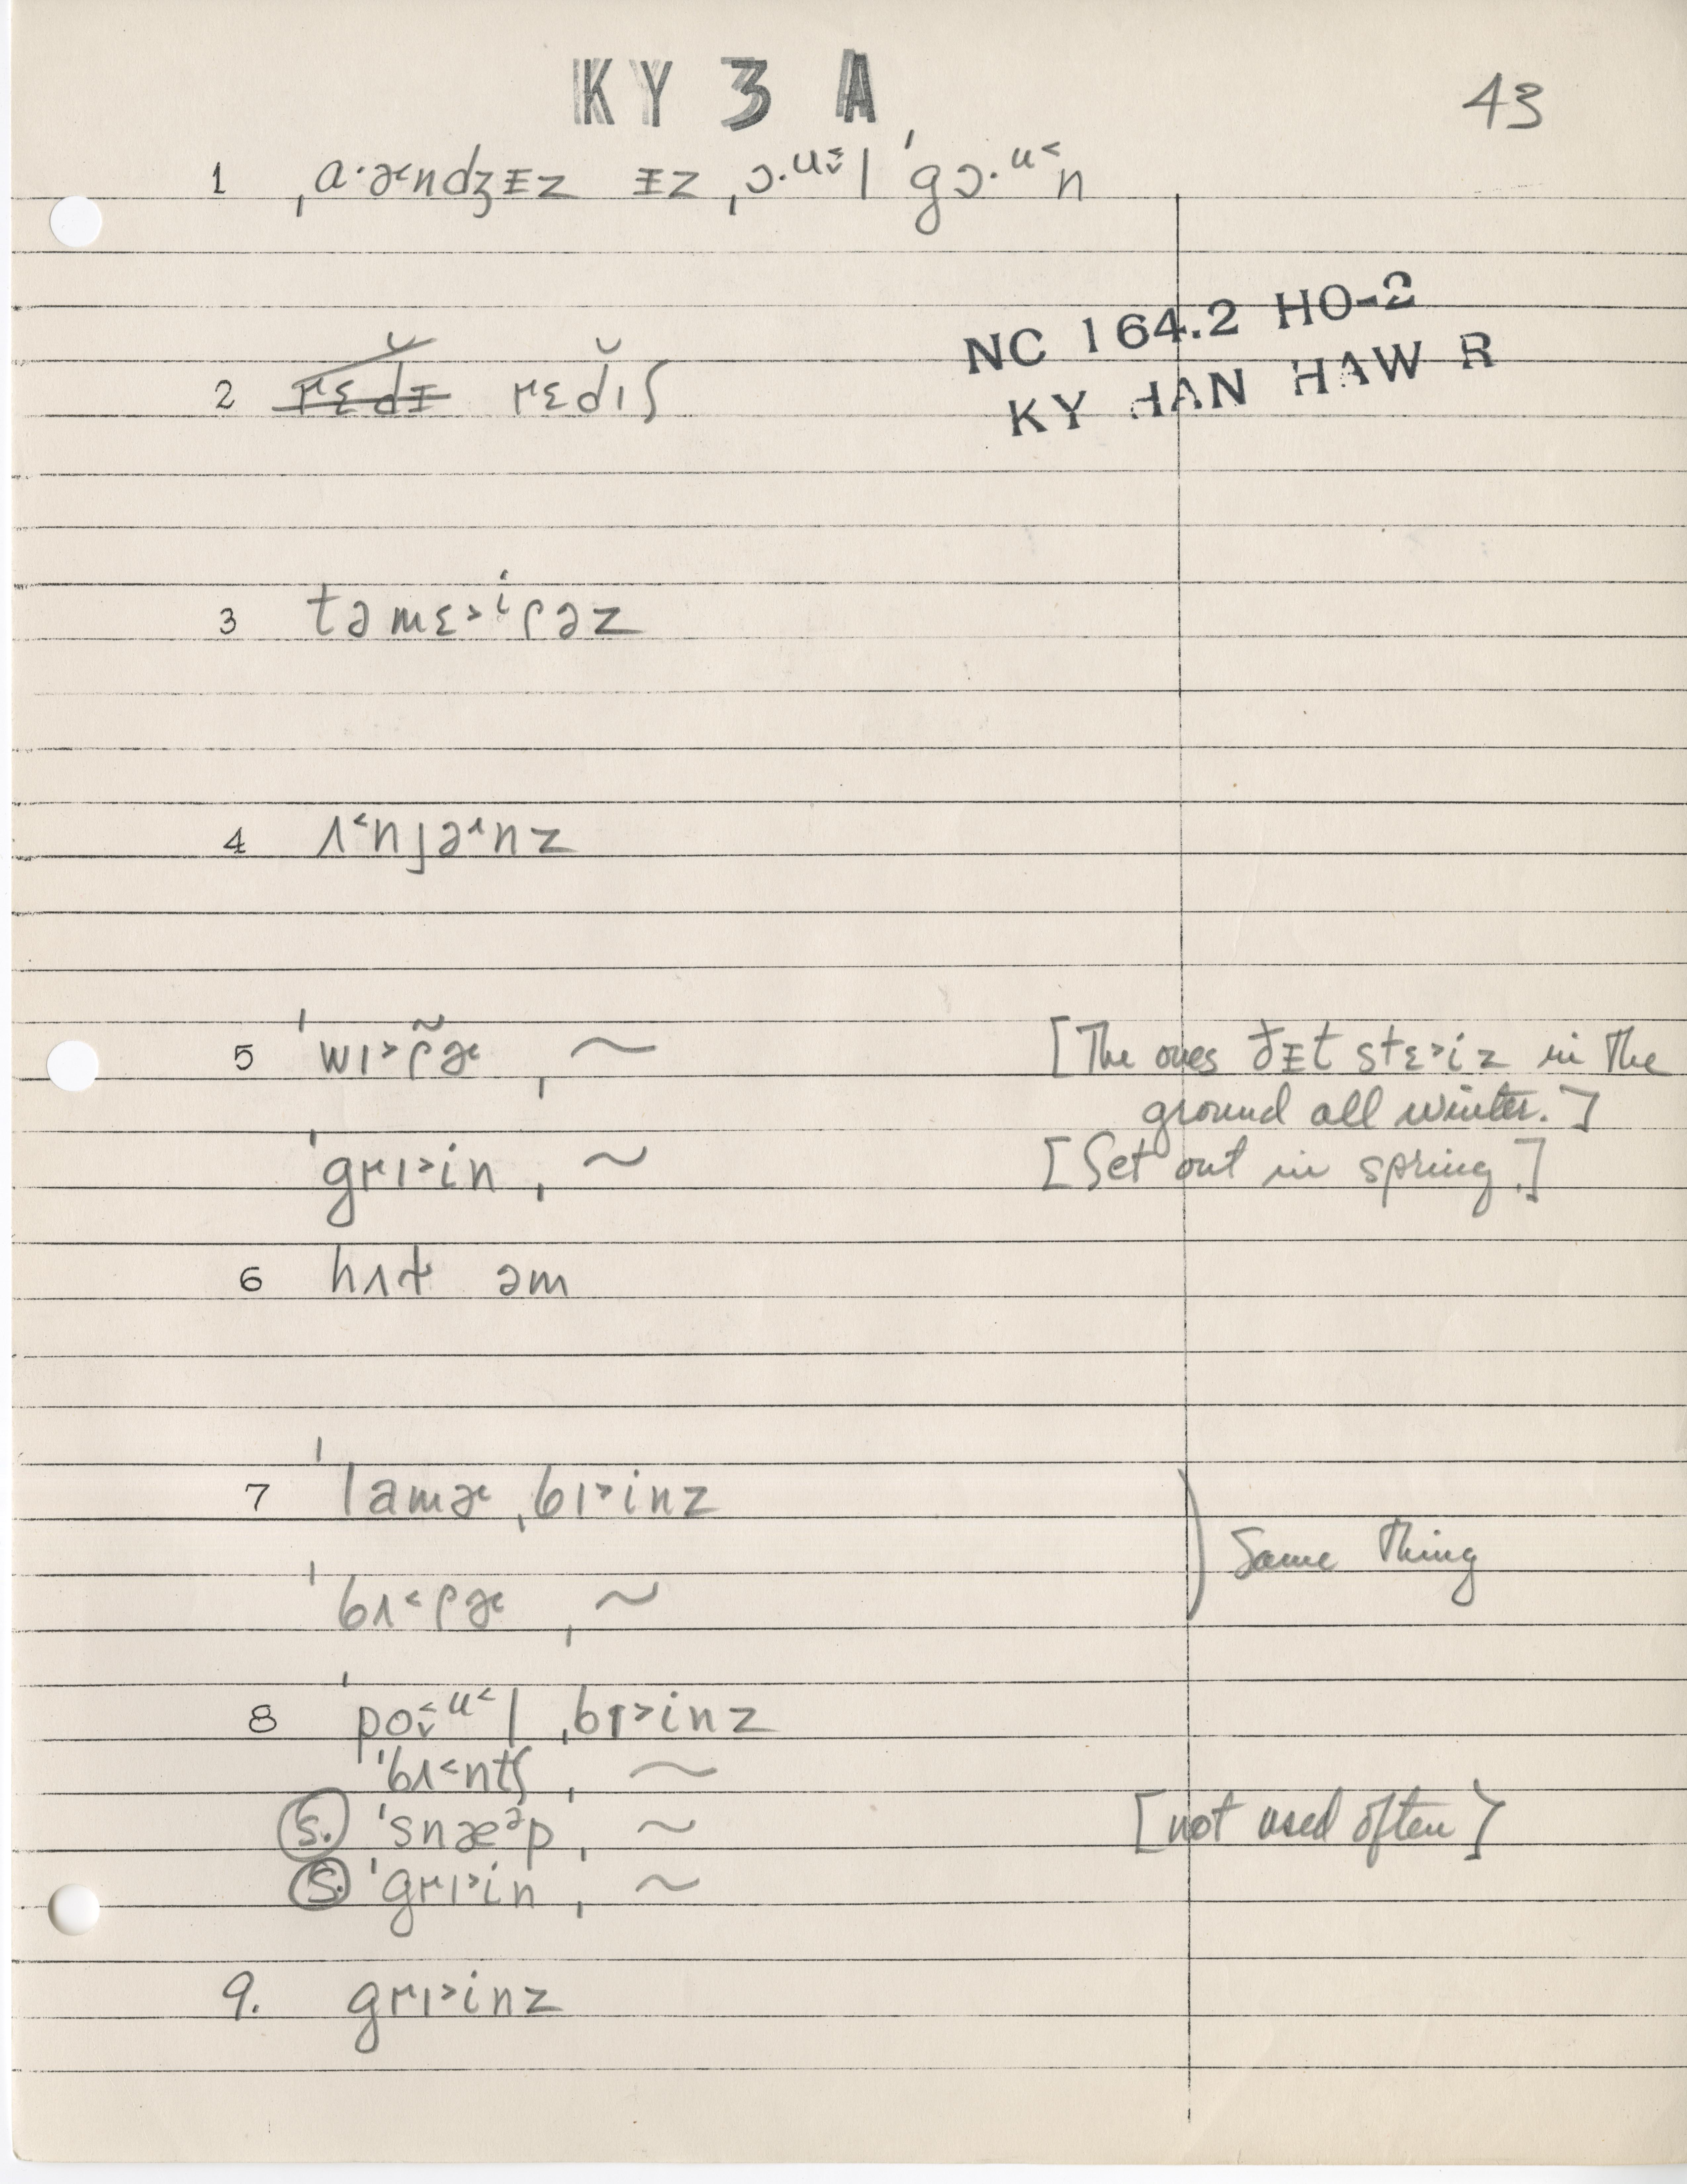 KY 3 A
43
1 ˌɑ·ɚndʒᵻz ᵻz ˌɔ·ᵘ˂̬l ˈgɔ·ᵘ˂n
NC 164.2 HO-2
KY HAN HAW R
2 r̶ɛ̶d̶ᵻ̶ rɛd̆ɪʃ
3 təmɛ˃ⁱɾəz
4 ʌ˂njə˄nz
5 ˈwɪ˃ɾ̃ɚ ˌ~ [The ones ðᵻt stɛ˃iz in the
ground all winter.]
ˈgrɪ˃in ˌ~ [Set out in spring.]
6 hʌt̬ əm
7 ˈlamɚ ˌbɪ˃inz
ˈbʌ˂ɾɚ ˌ~
Same thing
8 ˈpo˂̬ᵘ˂l ˌbɪ˃inz
ˈbʌ˂ntʃ ˌ~
S. ˈsnæᵊp ˌ~ [not used often]
S. ˈgrɪ˃in ˌ~
9. grɪ˃inz